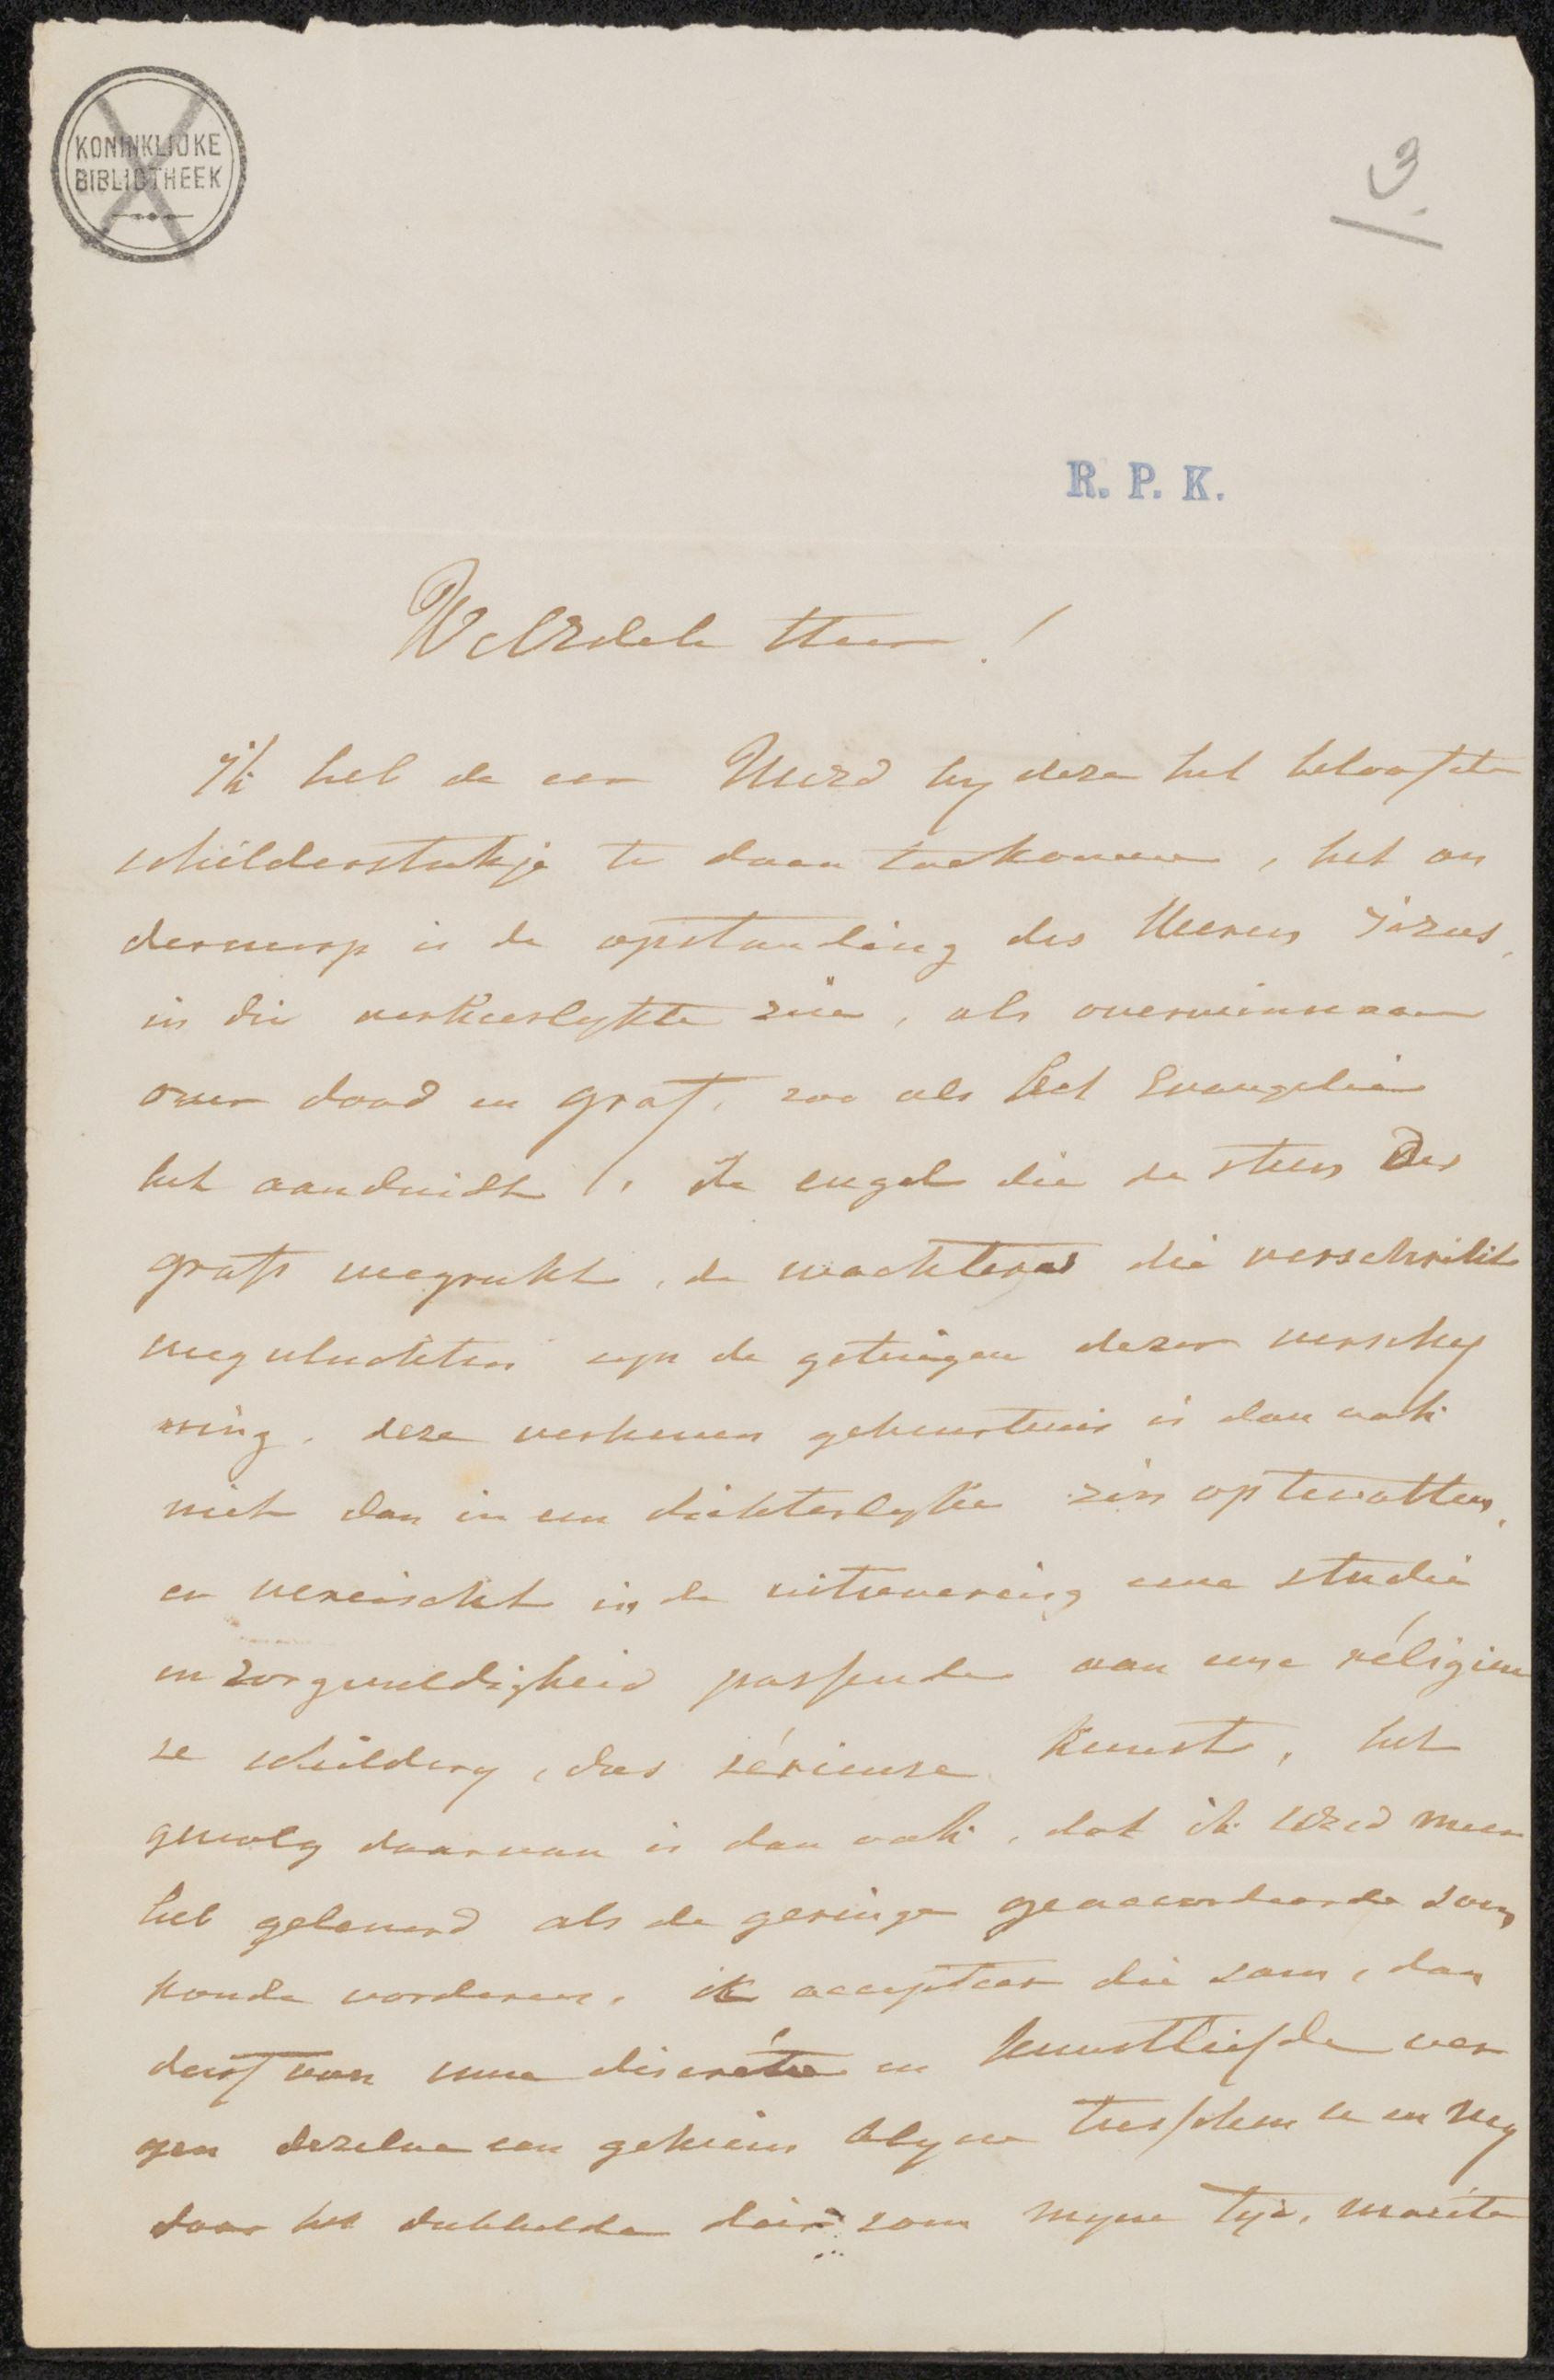 KONINKLIJKE
BIBLIOTHEEK
3.
R. P. K.
WelEdele Heer!
Ik heb de eer UwEd by deze het beloofde
schilderstukje te doen toekomen, het on
derwerp is de opstanding des Heeren Jezus,
in die verheerlykte zin, als overwinnaar
over dood en graf, zoo als het Evangelie
het aanduidt, de engel die de steen des
grafs wegrukt, de wachters die verschrikt
wegvluchten zyn de getuigen dezer verschy
ning. deze verheven gebeurtenis is dan ook
niet dan in een dichterlyke zin optevatten,
en vereischt in de uitvoering eene studie
en zorgvuldigheid passende aan eene réligieu
se schildery, dus sérieuse kunst, het
gevolg daarvan is dan ook, dat ik UEd meer
heb geleverd als de geringe geaccordeerde som
konde vorderen. ik accepteer die som, dan
durf van uwe discretie en kunstliefde ver
gen dezelve een geheim blyve tusschen U en my
daar het dubbelde dier som myne tyd, moeite